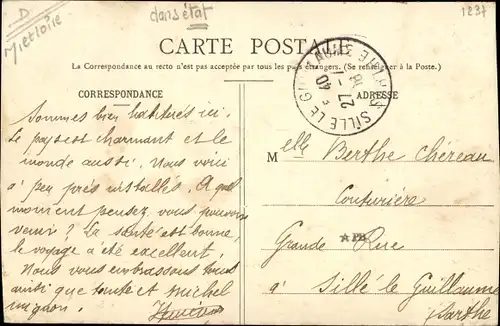 D
M et Loire
dans état
1237
CARTE POSTALE
La Correspondance au recto n'est pas acceptée par tous les pays étrangers. (Se renseigner à la Poste.)
CORRESPONDANCE
ADRESSE
SILLÉ LE GUILLAUME
27 - 7
40
Sommes bien habitués ici.
Le pays est charmant et le
monde aussi. Nous voici
à peu près installés. A quel
moment pensez vous pouvoir
venir ? La santé est bonne,
le voyage a été excellent.
Nous vous embrassons tous
ainsi que tante et Michel
mignon.
Melle Berthe Chéreau
Couturière
Grande Rue
à Sillé le Guillaume
Sarthe